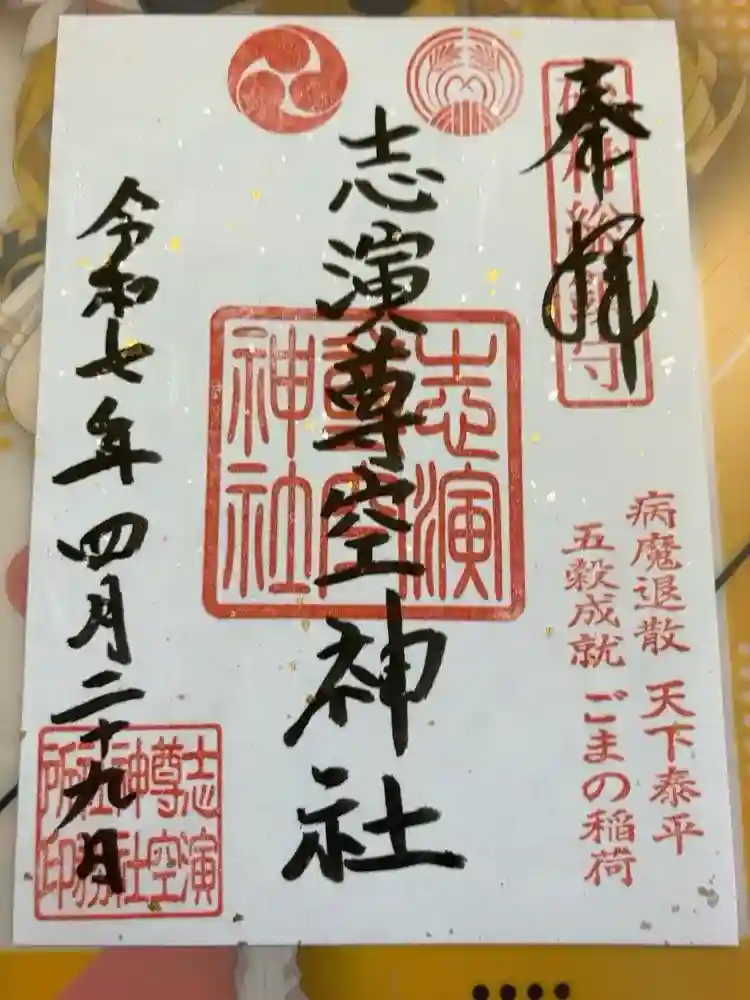 奉拝
病魔退散 天下泰平
五穀成就 ごまの稲荷
志演尊空神社
志演
尊空
神社
令和七年四月二十九日
志演
尊空
神社
社務
所印